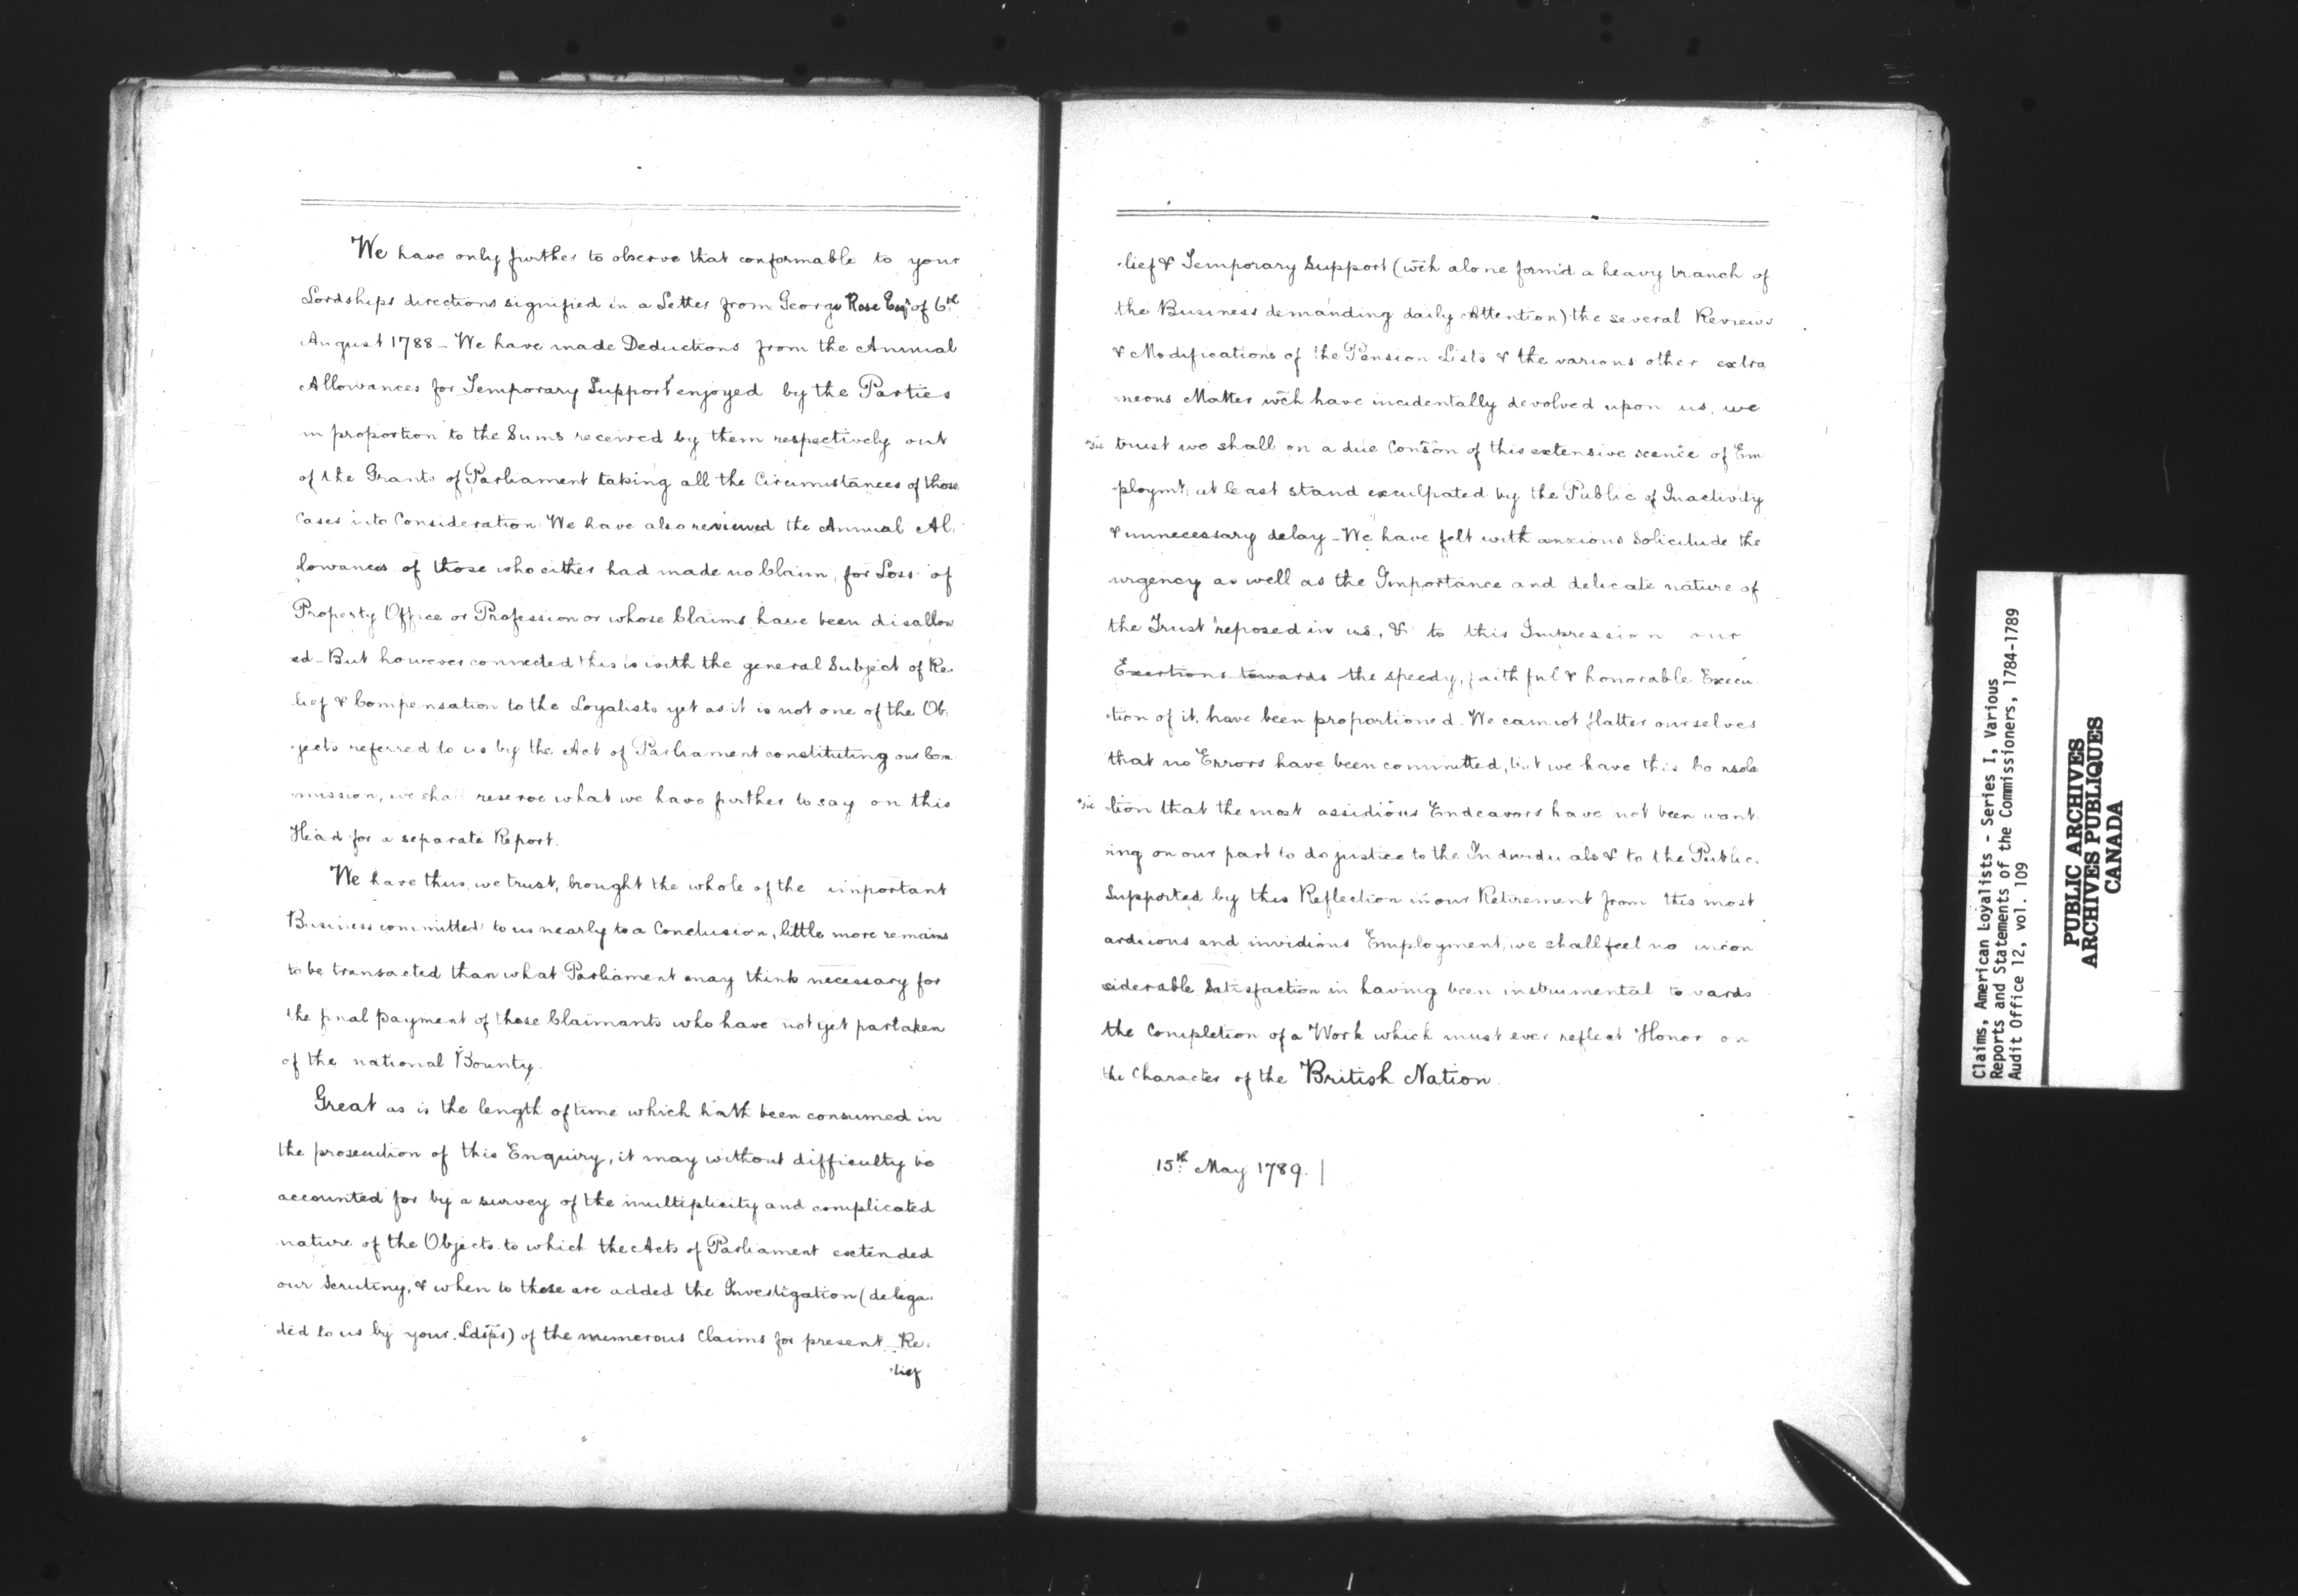 We have only further to observe that conformable to your
Lordships directions signified in a Letter from George Rose Esqr of 6th
August 1788 - We have made Deductions from the Annual
Allowances for Temporary Support enjoyed by the Parties
in proportion to the Sums received by them respectively out
of the Grants of Parliament taking all the Circumstances of those
Cases into Consideration We have also reviewed the Annual Al-
lowances of those who either had made no Claim, for Loss of
Property Office or Profession or whose Claims have been disallow
ed - But however connected this is with the general Subject of Re-
lief & Compensation to the Loyalists yet as it is not one of the Ob-
jects referred to us by the Act of Parliament constituting our Com
mission, we shall reserve what we have further to say on this
Head for a separate Report.
We have thus, we trust, brought the whole of the important
Business committed to us nearly to a Conclusion, little more remains
to be transacted than what Parliament may think necessary for
the final payment of those Claimants who have not yet partaken
of the national Bounty.
Great as is the length of time which hath been consumed in
the prosecution of this Enquiry, it may without difficulty be
accounted for by a survey of the multiplicity and complicated
nature of the Objects to which the Acts of Parliament extended
our Scrutiny, & when to these are added the Investigation (delega-
ded to us by your Ldsps) of the numerous Claims for present Re-
-lief
-lief & Temporary Support (wch alone form'd a heavy branch of
the Business demanding daily Attention) the several Reviews
& Modifications of the Pension Lists & the various other extra
-neous Matter wch have incidentally devolved upon us, we
*sic trust we shall on a due Conson of this extensive scenie of Em
-ploymt, at least stand exculpated by the Public of Inactivity
& unnecessary delay - We have felt with anxious Solicitude the
urgency as well as the Importance and delicate nature of
the Trust reposed in us, & to this Impression our
Exertions towards the speedy, faithful & honorable Execu-
-tion of it, have been proportioned. We cannot flatter ourselves
that no Errors have been committed, but we have this Consola
*sic -tion that the most assidious Endeavors have not been want
ing on our part to do justice to the Individuals & to the Public.
Supported by this Reflection in our Retirement from this most
arduous and invidious Employment, we shall feel no incon
siderable Satisfaction in having been instrumental towards
the Completion of a Work which must ever reflect Honor on
the Character of the British Nation.
15th May 1789.
Claims, American Loyalists - Series I, Various
Reports and Statements of the Commissioners, 1784-1789
Audit Office 12, vol. 109
PUBLIC ARCHIVES
ARCHIVES PUBLIQUES
CANADA